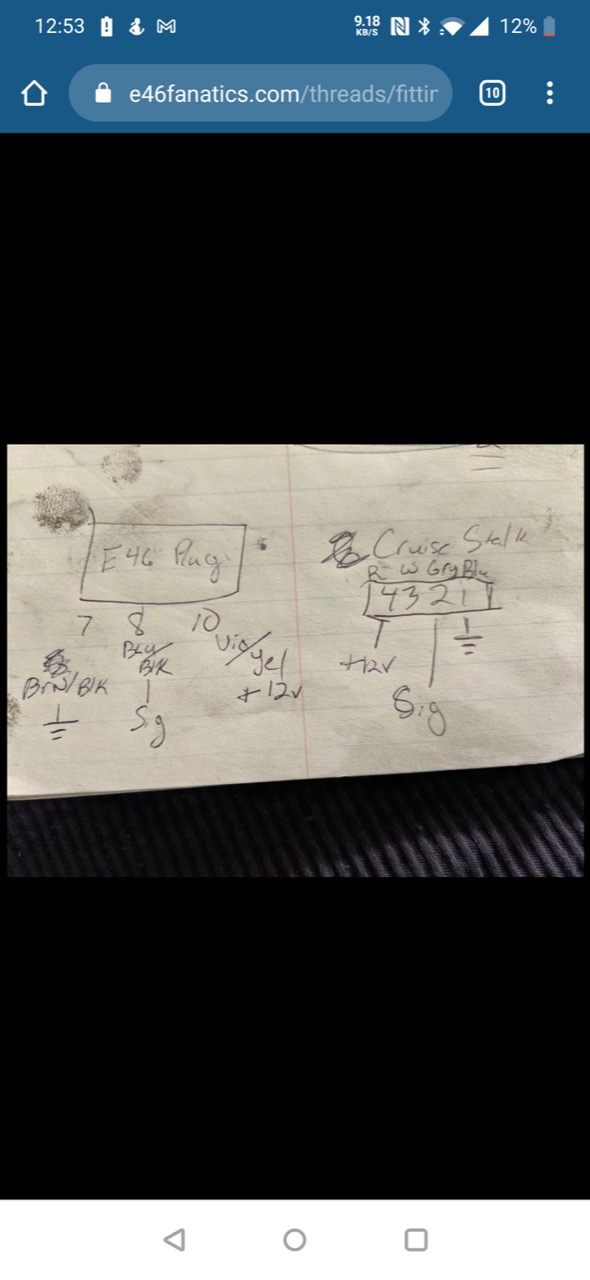 12:53
9.18
KB/S
12%
e46fanatics.com/threads/fittir
10
E46 Plug
7 8 10
Brn/Blk
Blu/
Blk
Vio/
yel
+12v
Sig
Cruise Stalk
R W Gry Blu
4 3 2 1
+12v
Sig